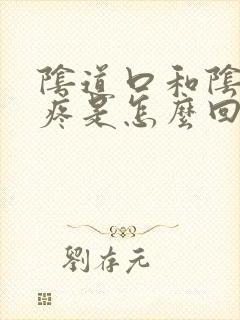 陰道口和陰
疼是怎麼回
劉存元